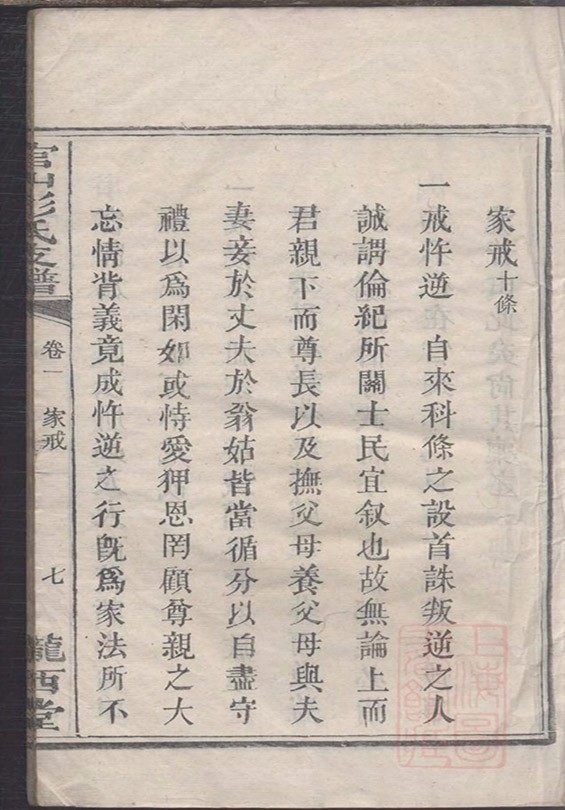 家戒十條
一戒忤逆 自來科條之設首誅叛逆之人
誠謂倫紀所關士民宜叙也故無論上而
君親下而尊長以及撫父母養父母與夫
妻妾於丈夫於翁姑皆當循分以自盡守
禮以爲閑如或恃愛狎恩罔顧尊親之大
忘情背義竟成忤逆之行旣爲家法所不
官山彭氏支譜
卷一 家戒
七
隴西堂